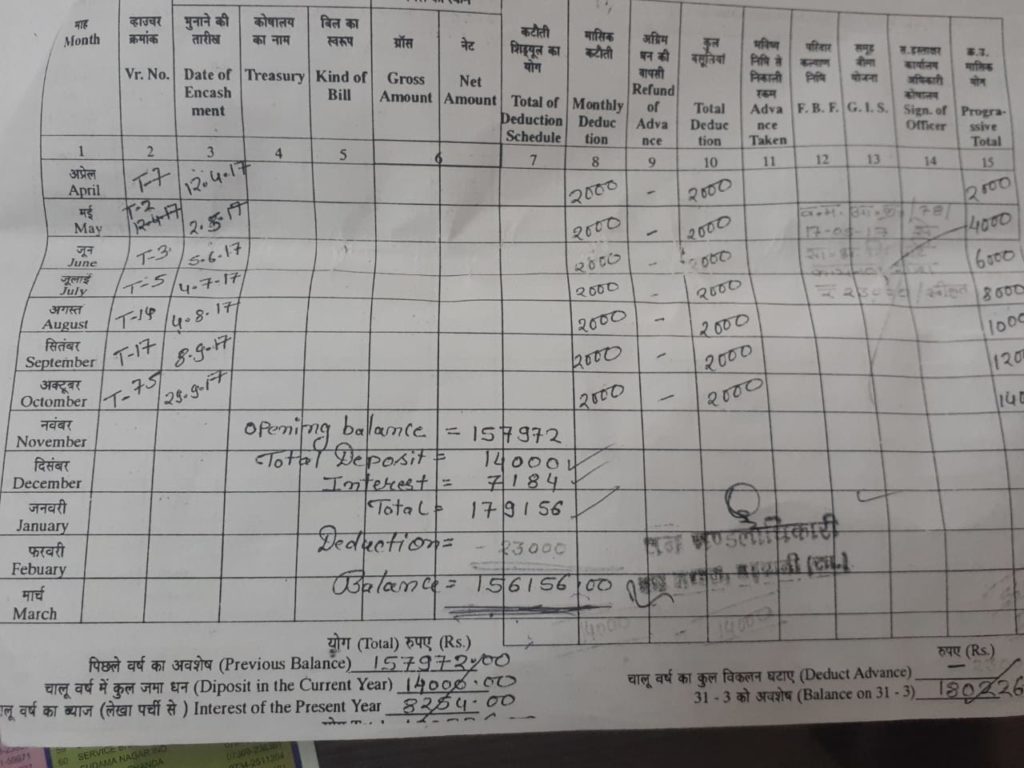 माह
Month
व्हाउचर
क्रमांक
Vr. No.
भुनाने की
तारीख
Date of
Encash
ment
कोषालय
का नाम
Treasury
बिल का
स्वरूप
Kind of
Bill
ग्रॉस
Gross
Amount
नेट
Net
Amount
कटौती
शिड्यूल का
योग
Total of
Deduction
Schedule
मासिक
कटौती
Monthly
Deduc
tion
अग्रिम
धन की
वापसी
Refund
of
Adva
nce
कुल
वसूलियां
Total
Deduc
tion
भविष्य
निधि से
निकाली
रकम
Adva
nce
Taken
परिवार
कल्याण
निधि
F. B. F.
समूह
बीमा
योजना
G. I. S.
कार्यालय
अधिकारी
कोषालय
Sign. of
Officer
मासिक
योग
Progra-
ssive
Total
1 2 3 4 5 6 7 8 9 10 11 12 13 14 15
अप्रेल
April T-7 12.4.17 2000 - 2000 2000
मई
May T-2 12-4-17 2.5.17 2000 - 2000 4000
जून
June T-3 5.6.17 2000 - 2000 6000
जूलाई
July T-5 4-7-17 2000 - 2000 8000
अगस्त
August T-14 4.8.17 2000 - 2000 1000
सितंबर
September T-17 8-9-17 2000 - 2000 120
अक्टूबर
Octomber T-75 29.9.17 2000 - 2000 140
नवंबर
November
Opening balance = 157972
दिसंबर
December
Total Deposit = 14000
Interest = 7184
जनवरी
January
Total = 179156
फरवरी
Febuary
Deduction = - 23000
मार्च
March
Balance = 156156.00
वन मण्डलाधिकारी
14000 - 14000
योग (Total) रुपए (Rs.)
पिछले वर्ष का अवशेष (Previous Balance) 157972.00
चालू वर्ष में कुल जमा धन (Diposit in the Current Year) 14000.00
लू वर्ष का ब्याज (लेखा पर्ची से ) Interest of the Present Year 8254.00
रुपए (Rs.)
चालू वर्ष का कुल विकलन घटाए (Deduct Advance)
31 - 3 को अवशेष (Balance on 31 - 3) 180226
60 SERVICE
SUDAMA NAGAR IND
0734-2511204